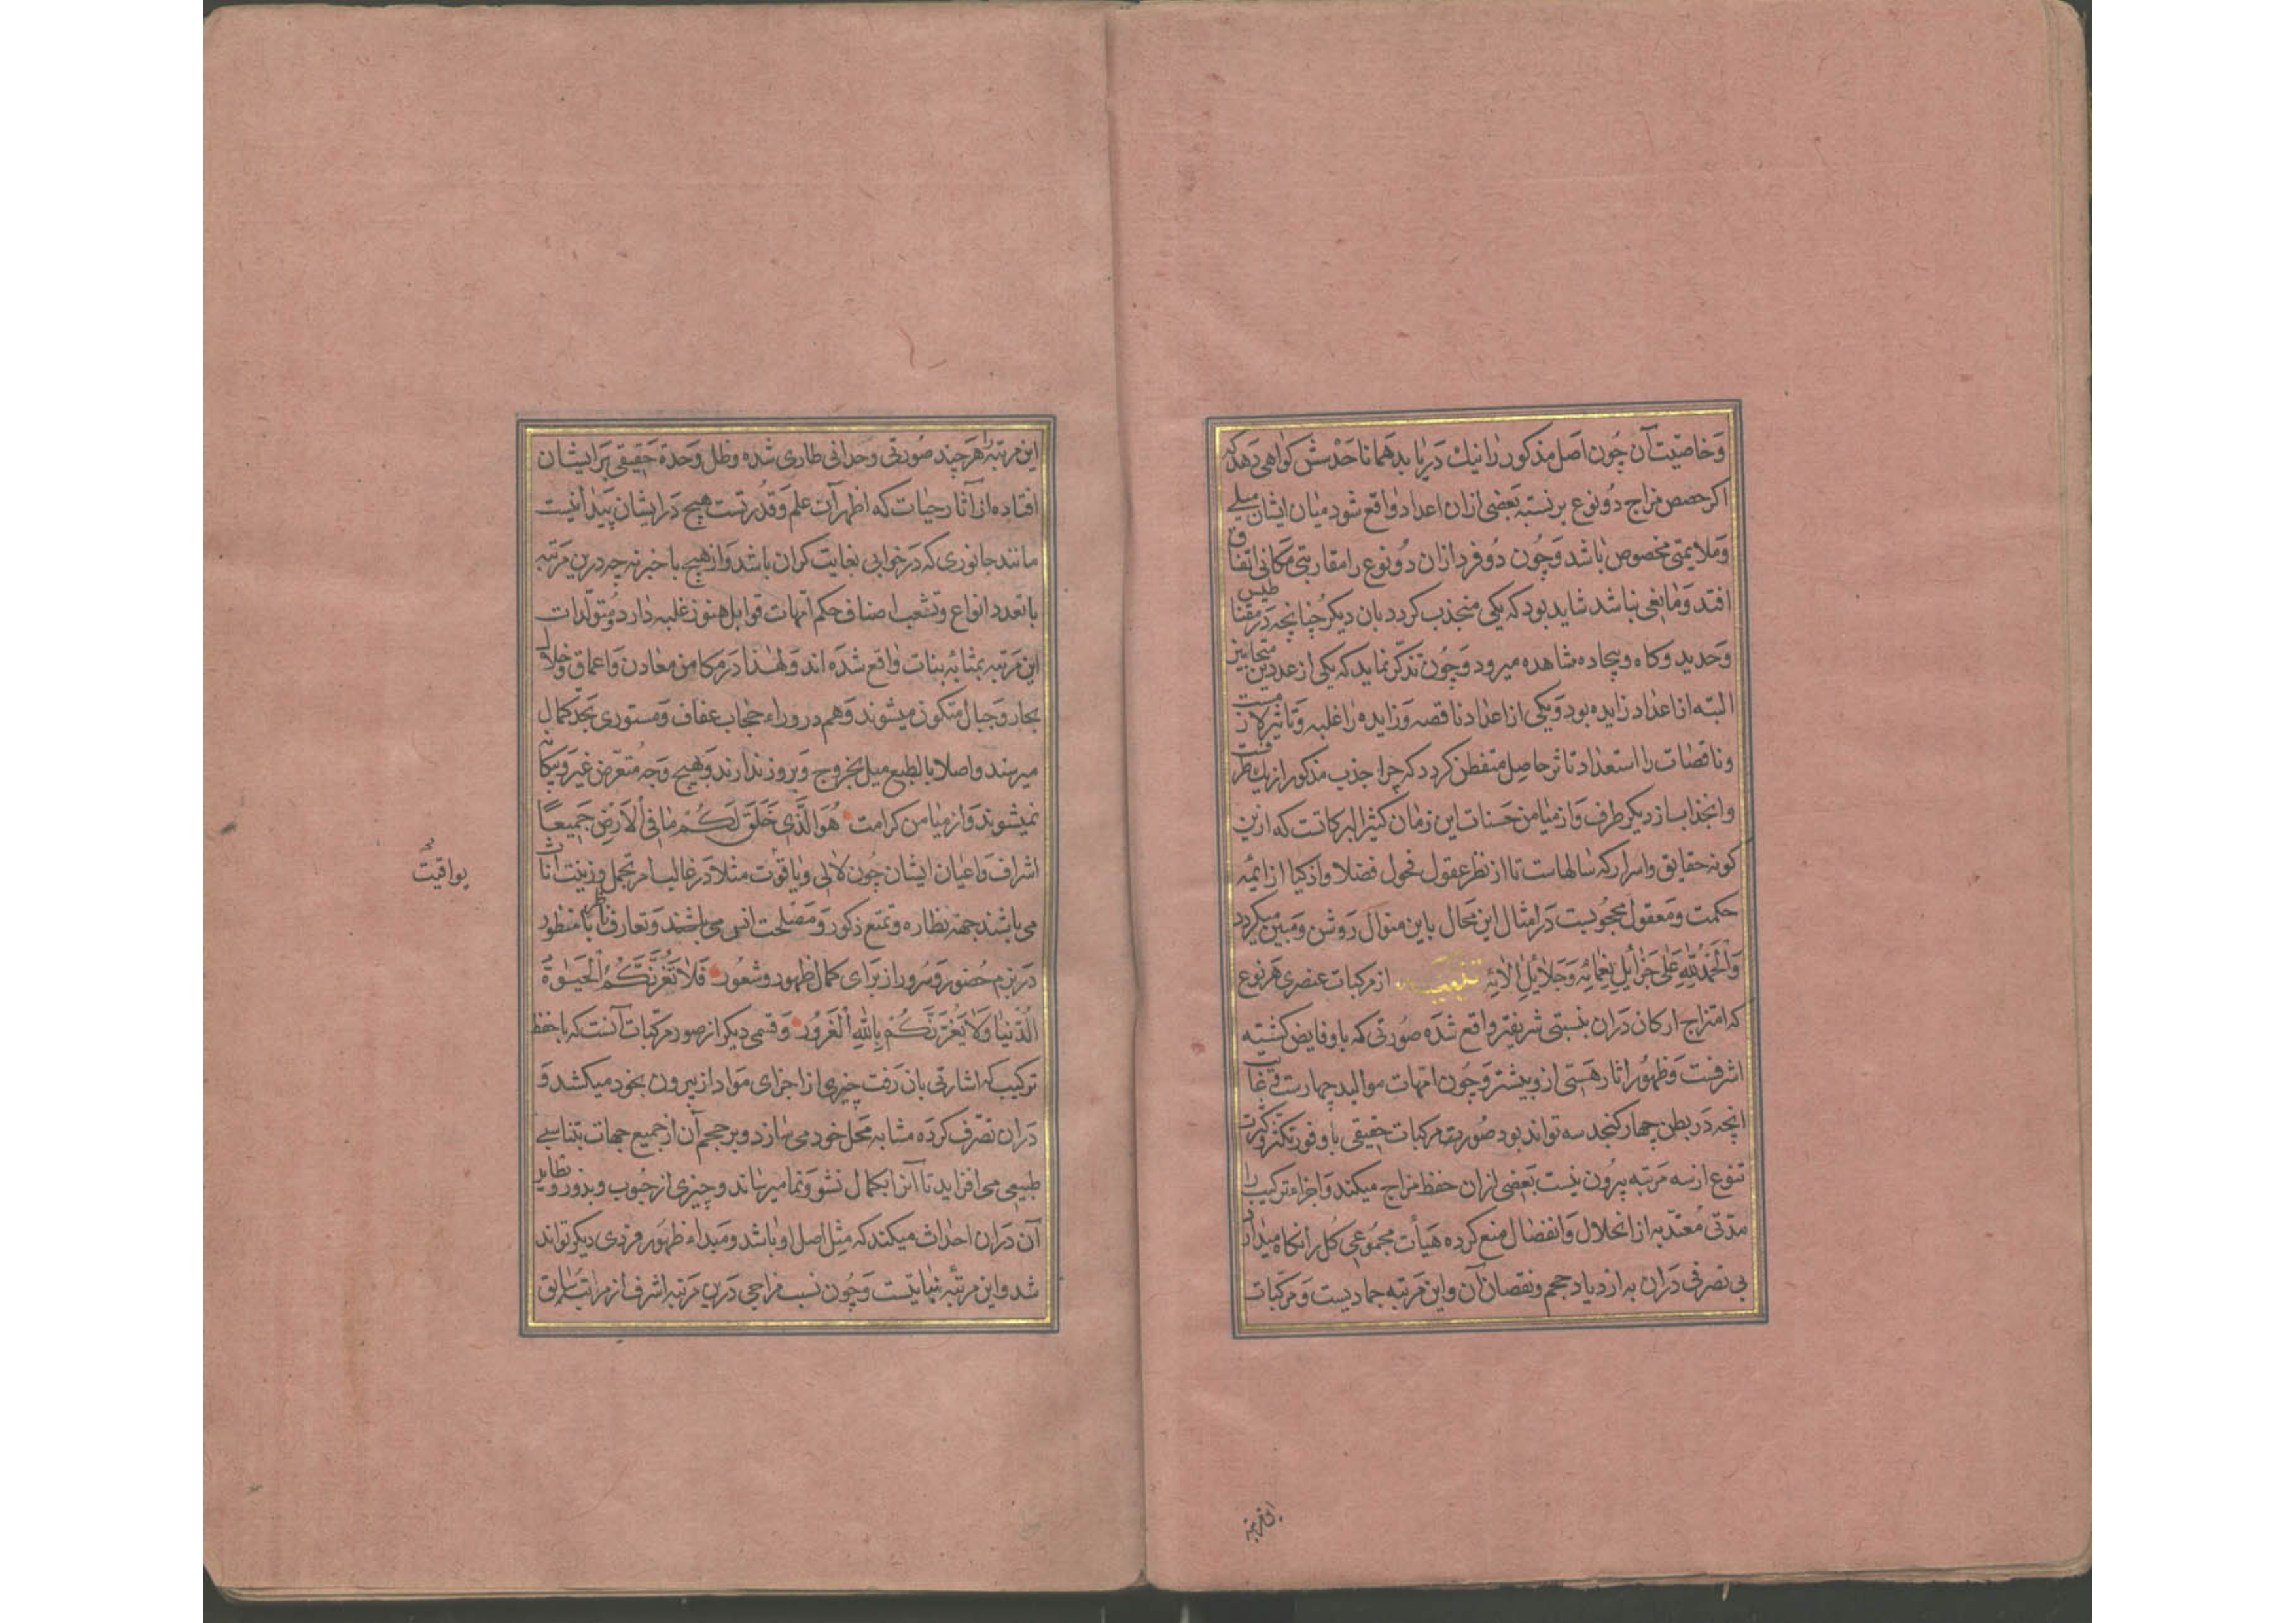 وخاصیت آن چون اصل مذکور را نیک دریابد همانا حدسش کواهی دهد که
اکر حصص مزاج دو نوع بر نسبة بعضی ازان اعداد واقع شود میان ایشان میلے
وملایمتی مخصوص باشد وچون دو فرد ازان دو نوع را مقاربتی مکانی اتفاق
افتد ومانعی نباشد شاید بود که یکی منجذب کردد بان دیکر چنانچه در مقناطیس
وحدید وکاه وبیجاده مشاهده میرود وچون تذکر نماید که یکی از عددین متحابین
البته از اعداد زایده بود ویکی از اعداد ناقصه وزایده را غلبه وتاثیر لازمست
وناقصات را استعداد تاثر حاصل متفطن کردد که چرا جذب مذکور از یک طرفست
وانجذاب از دیکر طرف واز میامن حسنات این زمان کثیر البرکاتست که ازین
کونه حقایق واسرار که سالهاست تا از نظر عقول فحول فضلا واذکیا از ایمه
حکمت ومعقول محجوبست در امثال این محال باین منوال روشن ومبین میکردد
وَالْحَمْدُ لِلّٰهِ عَلٰی جَزٰایِلِ نِعَمٰائِهِ وَجَلٰایِلِ اٰلٰائِهِ از مرکبات عنصری هر نوع
که امتزاج ارکان دران بنسبتی شریفتر واقع شده صورتی که باو فایض کشته
اشرفست وظهور اثار هستی ازو بیشتر وچون امهات موالید چهارست وغایت
انچه در بطن چهار کنجد سه تواند بود صورت مرکبات حقیقی با وفور تکثر وکثرت
تنوع از سه مرتبه بیرون نیست بعضی ازان حفظ مزاج میکند واجزاء ترکیب را
مدتی معتد به از انحلال وانفصال منع کرده هیأت مجموعی کل را نکاه میدارد
بی تصرفی دران به ازدیاد حجم ونقصان آن واین مرتبه جمادیست ومرکبات
این مرتبه
این مرتبه را هر چند صورتی وحدانی طاری شده وظل وحدة حقیقی بر ایشان
افتاده از آثار حیات که اظهر آن علم وقدرتست هیچ در ایشان پیدا نیست
مانند جانوری که در خوابی بغایت کران باشد واز هیچ با خبر نه چه درین مرتبه
با تعدد انواع وتشعب اصناف حکم امهات قوابل هنوز غلبه دارد ومتولدات
این مرتبه بمثابه بنات واقع شده اند ولهذا در مکامن معادن واعماق وخلال
بحار وجبال متکون میشوند وهم در وراء حجاب عفاف ومستوری بحد کمال
میرسند واصلا بالطبع میل بخروج وبروز ندارند وبهیچ وجه متعرض غیر وبیکانه
نمیشوند واز میامن کرامت هُوَ الَّذِی خَلَقَ لَكُمْ مٰا فِی الْاَرْضِ جَمِیعًا
اشراف واعیان ایشان چون لالی ویاقوت مثلا در غالب امر تجمل وزینت اناث
می باشند جهة نظاره وتمتع ذکور ومصلحت انس می باشند وتعارف ناظر با منظور
در بزم حضور وسرور از برای کمال ظهور وشعور فَلٰا تَغُرَّنَّكُمُ الْحَیٰوةُ
الدُّنْیٰا وَلٰا یَغُرَّنَّكُمْ بِاللّٰهِ الْغَرُورُ وقسمی دیکر از صور مرکبات آنست که با حفظ
ترکیب که اشارتی بان رفت چیزی از اجزای مواد از بیرون بخود میکشد و
دران تصرف کرده مشابه محل خود می سازد وبر حجم آن از جمیع جهات بتناسبے
طبیعی می افزاید تا آنرا بکمال نشو ونما میرساند وچیزی از حبوب وبذور ونظایر
آن دران احداث میکند که مثل اصل او باشد ومبداء ظهور فردی دیکر تواند
شد واین مرتبه نباتیست وچون نسب مزاجی درین مرتبه اشرف از مراتب سابق
یواقیت